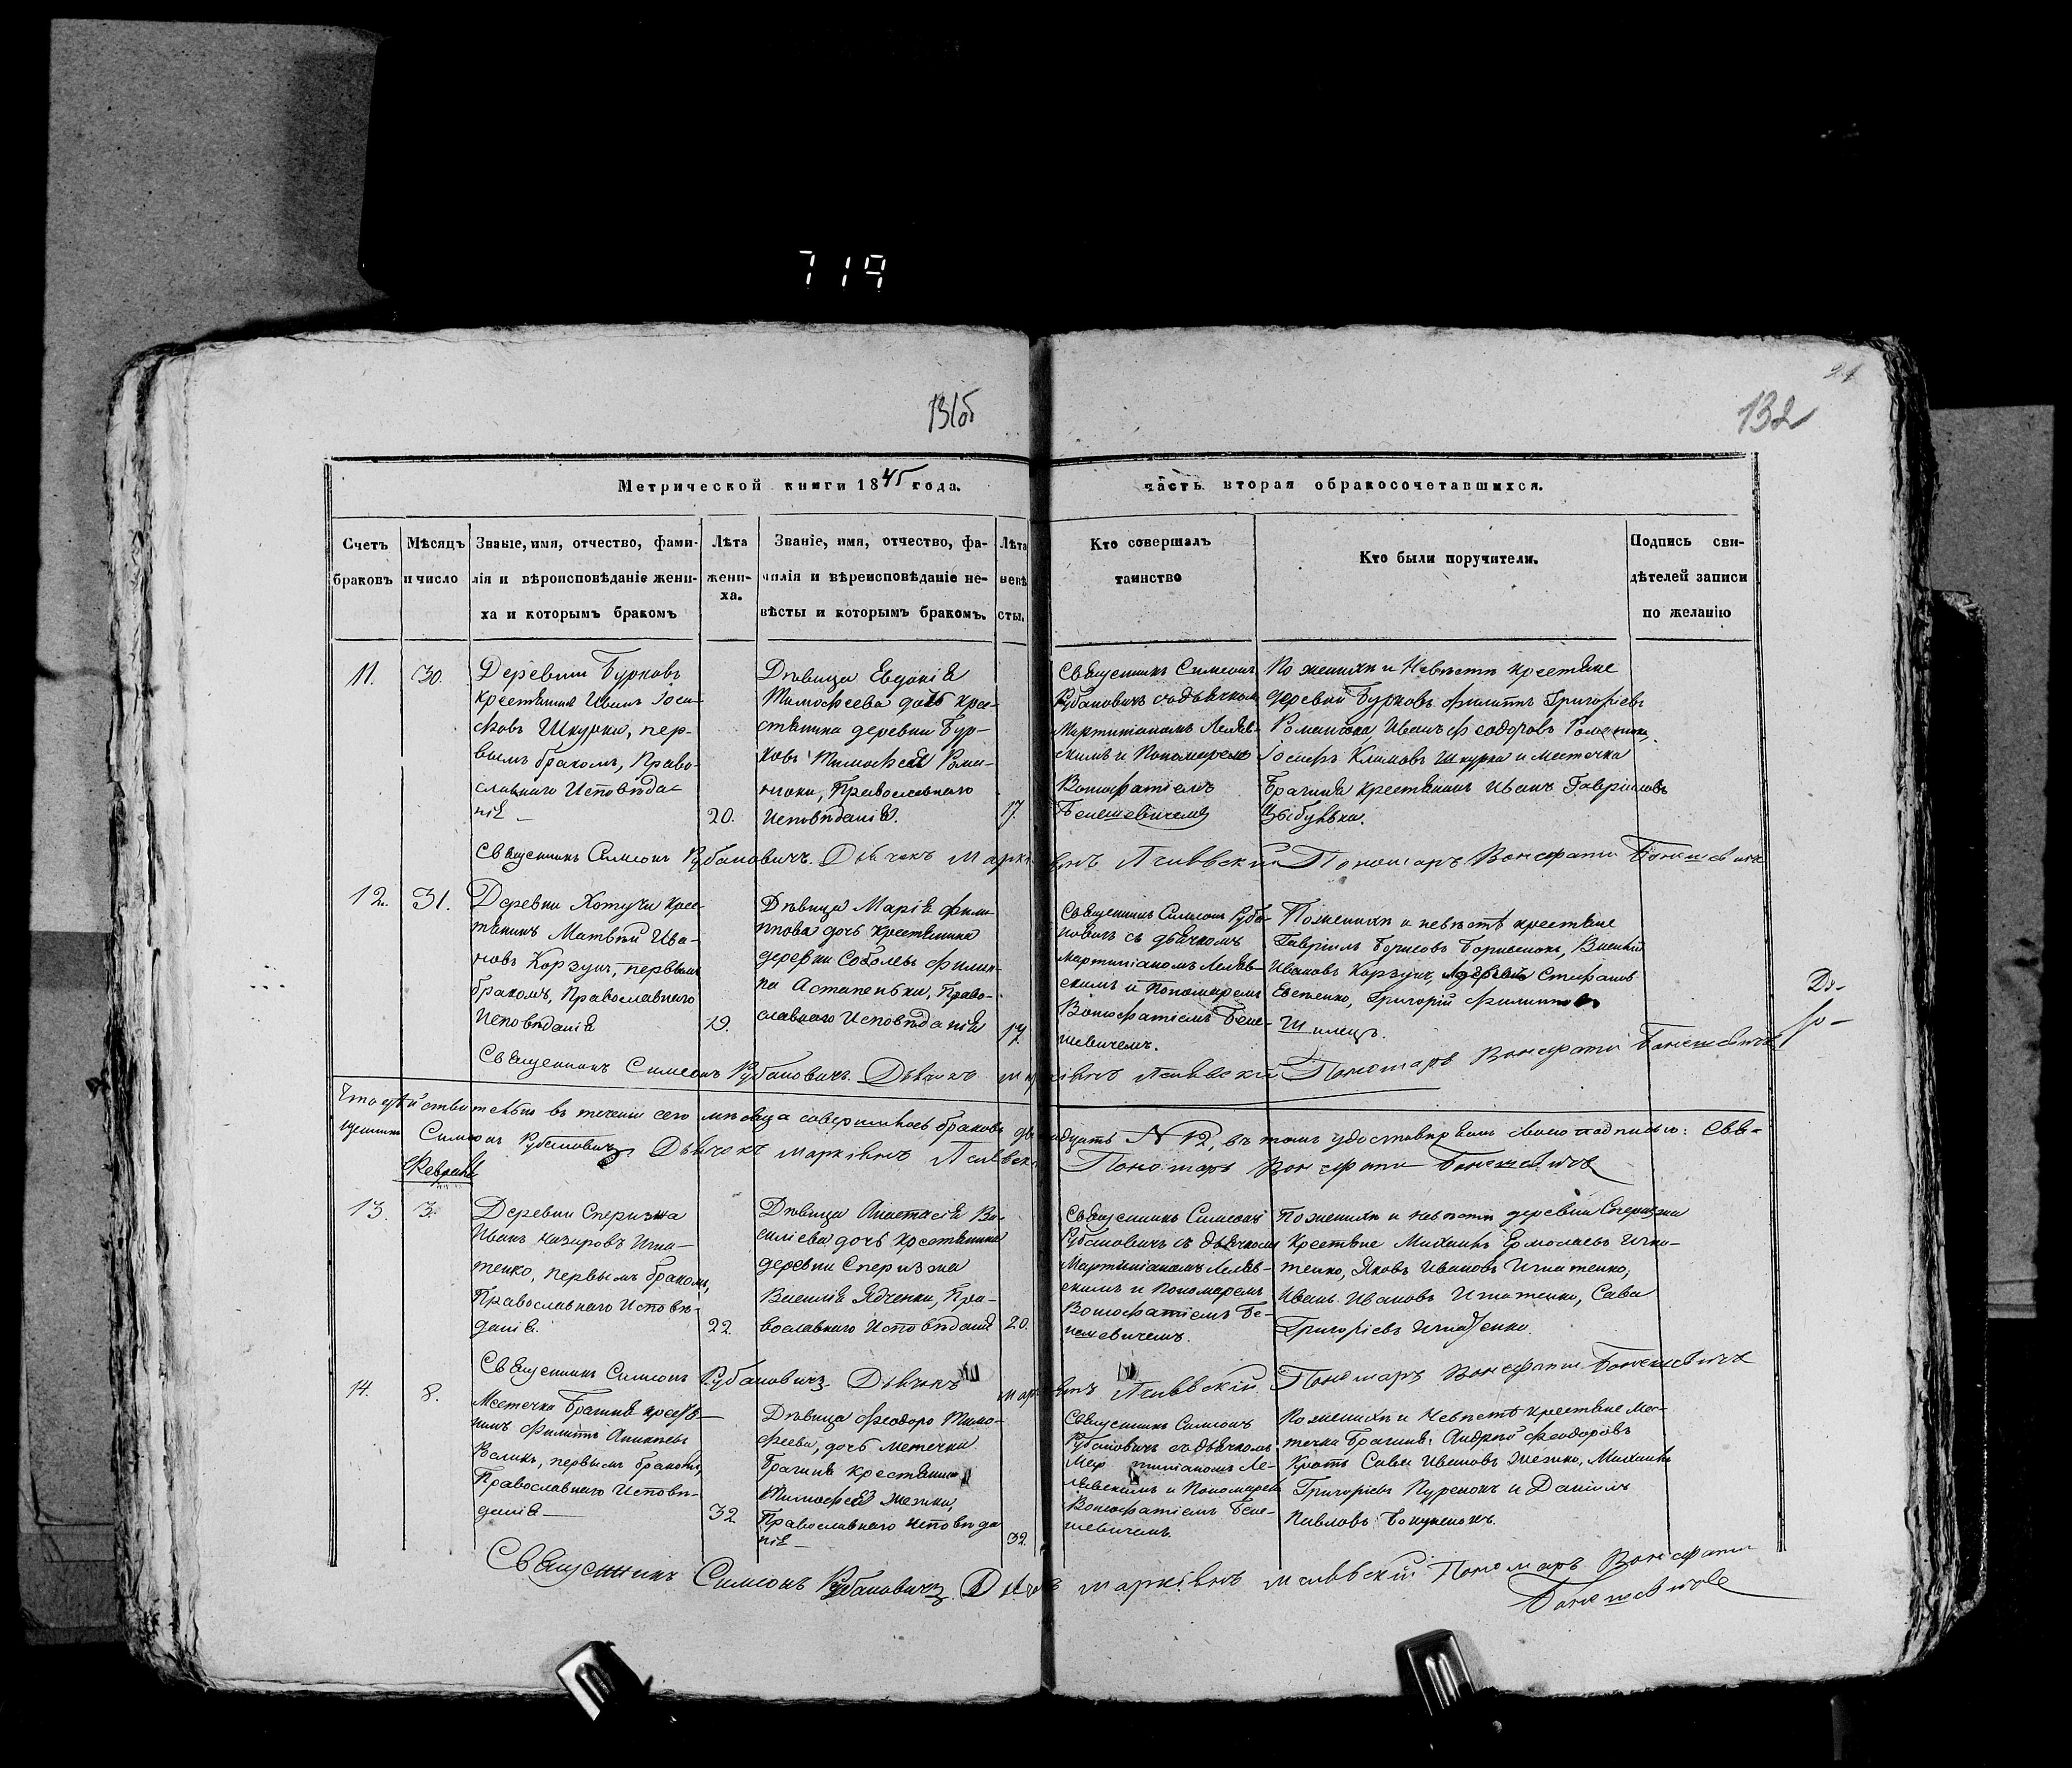 719
131об
21
132
Метрической книги 1845 года.
часть вторая обракосочетавшихся.
Счетъ браковъ
Мѣсяцъ и число
Званіе, имя, отчество, фами-
лія и вѣроисповѣданіе жени-
ха и которымъ бракомъ
Лѣта
жени-
ха.
Званіе, имя, отчество, фа-
милія и вѣреисповѣданіе не-
вѣсты и которымъ бракомъ.
Лѣта
невѣ
сты.
Кто совершалъ
таинство
Кто были поручители.
Подпись сви-
дѣтелей записи
по желанію
11.
30.
Деревни Бурковъ
крестянинъ Иванъ Іоси-
фовъ Шкурка, пер-
вымъ бракомъ, Право-
славнаго Исповѣда-
нія
20.
Дѣвица Евдокія
Тимофеева дочь кре-
стянина деревни Бур-
ковъ Тимофея Рома-
нюка, Православнаго
Исповѣданія.
17.
Священникъ Симеонъ
Рубановичъ съ дьячкомъ
Мартиніаномъ Леляв-
скимъ и Пономаремъ
Вонифатіемъ
Бенешевичемъ
По женихѣ и Невѣстѣ крестяне
деревни Бурковъ Филиппъ Григоріевъ
Романюка, Иванъ Феодоровъ Романюка,
Іосифъ Климовъ Шкурка и местечка
Брагина крестянинъ Иванъ Гавріиловъ
Цыбулька.
Священникъ Симеонъ Рубановичъ. Дьячекъ Пономарь Вонифати Бенешевичъ
12.
31.
Деревни Хотучи крес-
тянинъ Матвѣй Ива-
новъ Корзунъ, первымъ
бракомъ, Православнаго
Исповѣданія
19.
Дѣвица Марія Фили-
ппова дочь крестянина
деревни Соболевъ Филип-
па Астапеньки, Право-
славнаго Исповѣданія
17.
Священникъ Симеонъ Руба-
новичъ съ дьячкомъ
Мартиніаномъ Леляв-
скимъ и Пономаремъ
Вонифатіемъ Бене-
шевичемъ.
По женихѣ и невѣстѣ крестяне
Гавріилъ Борисовъ Василій
Ивановъ Корзунъ, Стефановъ
Евсеенко, Григорій Филиповъ
Шпилецъ.
До-
Священникъ Симеонъ Рубановичъ. Дьячекъ Пономарь Вонифати Бенешевичъ
Что дѣйствительно въ теченіи сего мѣсяца совершилось браковъ двенадцать №12, въ томъ удостовѣряемъ своею подписью: Свя-
щенникъ Симеонъ Рубановичъ Дьячокъ Пономарь Вонифати Бенешевичъ
Февраль
13.
3.
Деревни Сперижа
Иванъ Назаровъ Игна-
тенко, первымъ бракомъ,
Православнаго Исповѣ-
данія.
22.
Дѣвица Анастасія Ва-
силіева дочь крестянина
деревни Сперижа
Василія Ядченки, Пра-
вославнаго Исповѣданія
20.
Священникъ Симеонъ
Рубановичъ съ дьячкомъ
Мартиніаномъ Леляв-
скимъ и Пономаремъ
Вонифатіемъ Бе-
нешевичемъ.
По женихѣ и невѣстѣ деревни Сперижа
крестяне Михаилъ Ермолаевъ Игна-
тенко, Яковъ Ивановъ Игнатенко,
Иванъ Ивановъ Игнатенко, Сава
Григоріевъ Игнатенко.
Священникъ Симеонъ Рубановичъ Дьячекъ Пономарь Вонифати Бенешевичъ
14.
8.
Местечка Брагина крестя-
нинъ Филиппъ
первымъ бракомъ,
Православнаго Исповѣ-
данія
32
Дѣвица Феодора Тимо-
феева, дочь местечка
Брагина крестянина
Тимофея
Православнаго Исповѣда
нія
32.
Священникъ Симеонъ
Рубановичъ съ дьячкомъ
Мартиніаномъ Ле-
лявскимъ и Пономаремъ
Вонифатіемъ Бене-
шевичемъ.
По женихѣ и Невѣстѣ крестяне Мес-
течка Брагина: Андрей Феодоровъ
Кротъ Сава Ивановъ Михаилъ
Григоріевъ и Даніилъ
Павловъ
Священникъ Симеонъ Рубановичъ. Пономарь Вонифати
Бенешевичъ